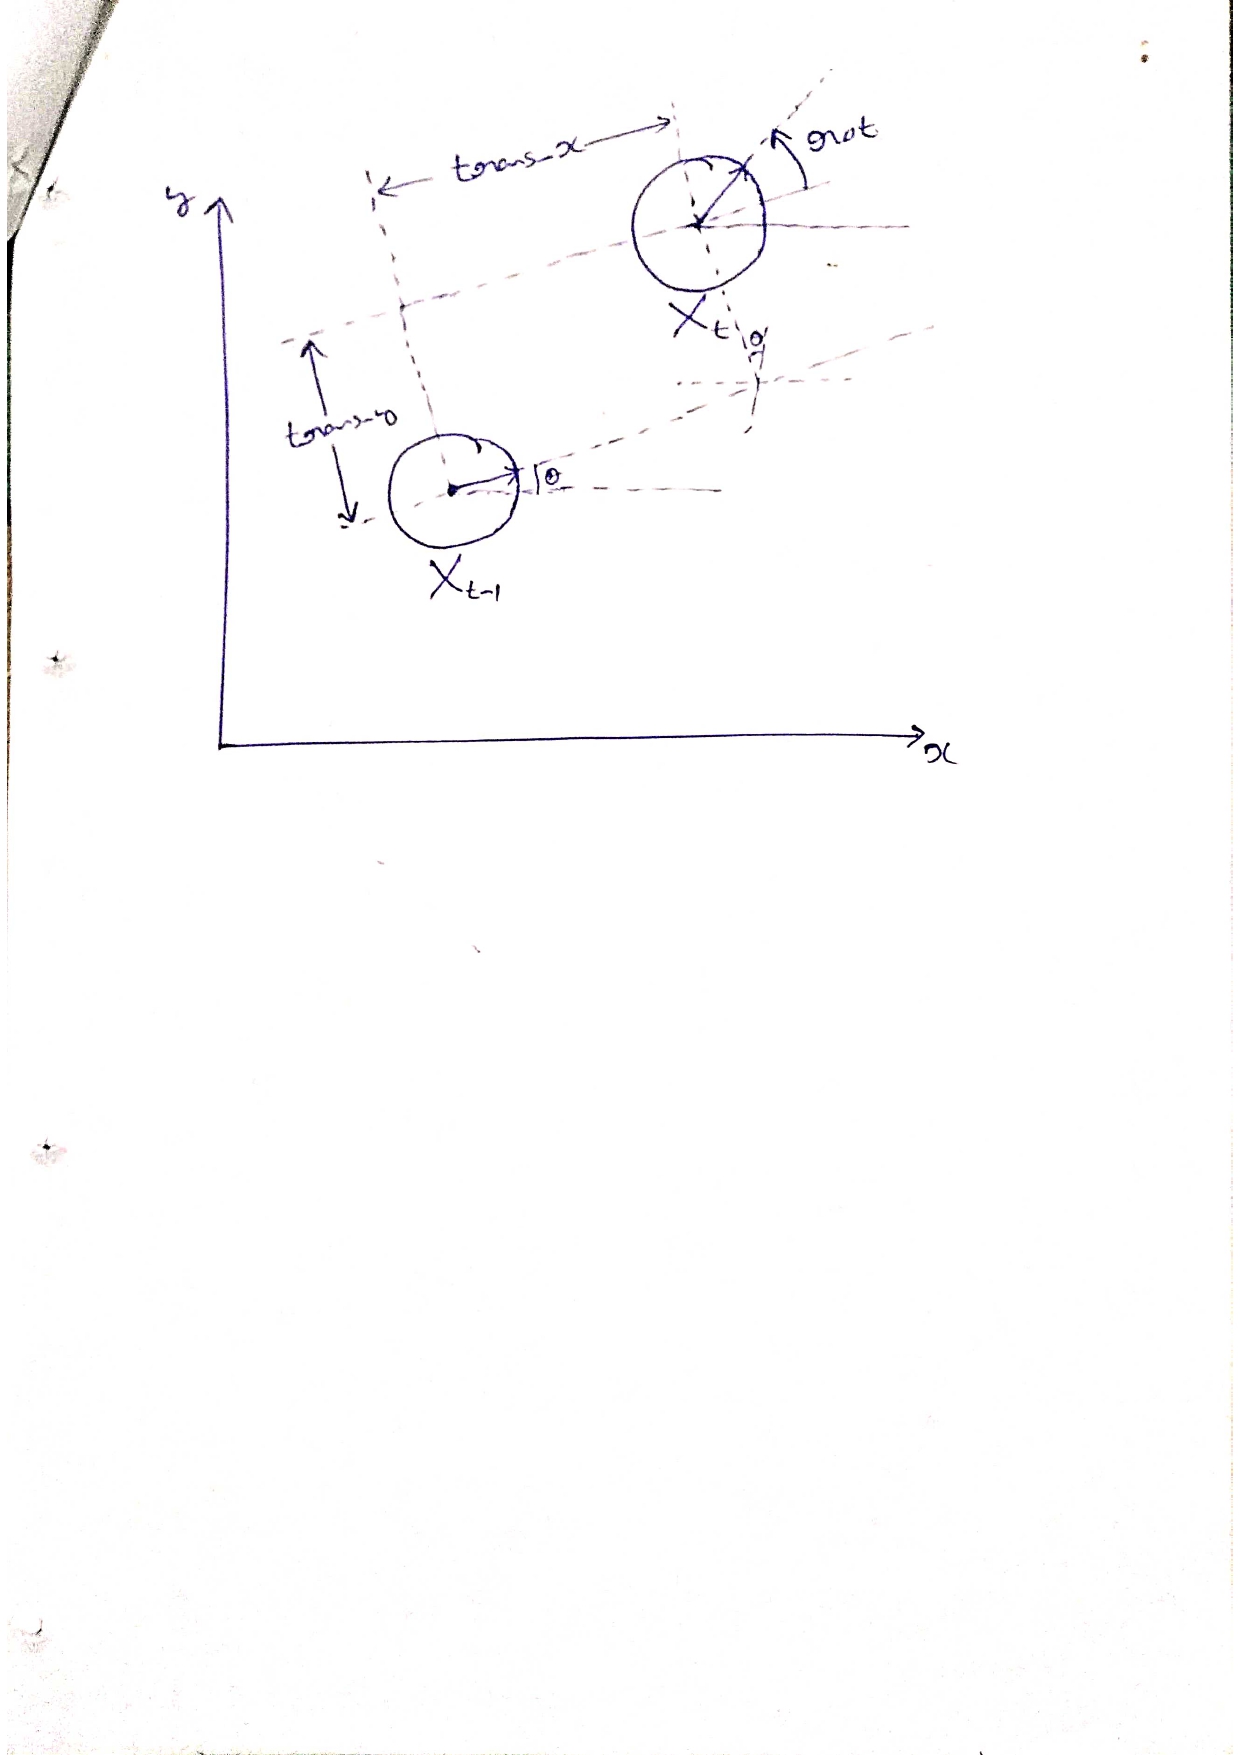 trans-x
rot
y
X_t
θ
trans-y
θ
X_{t-1}
x